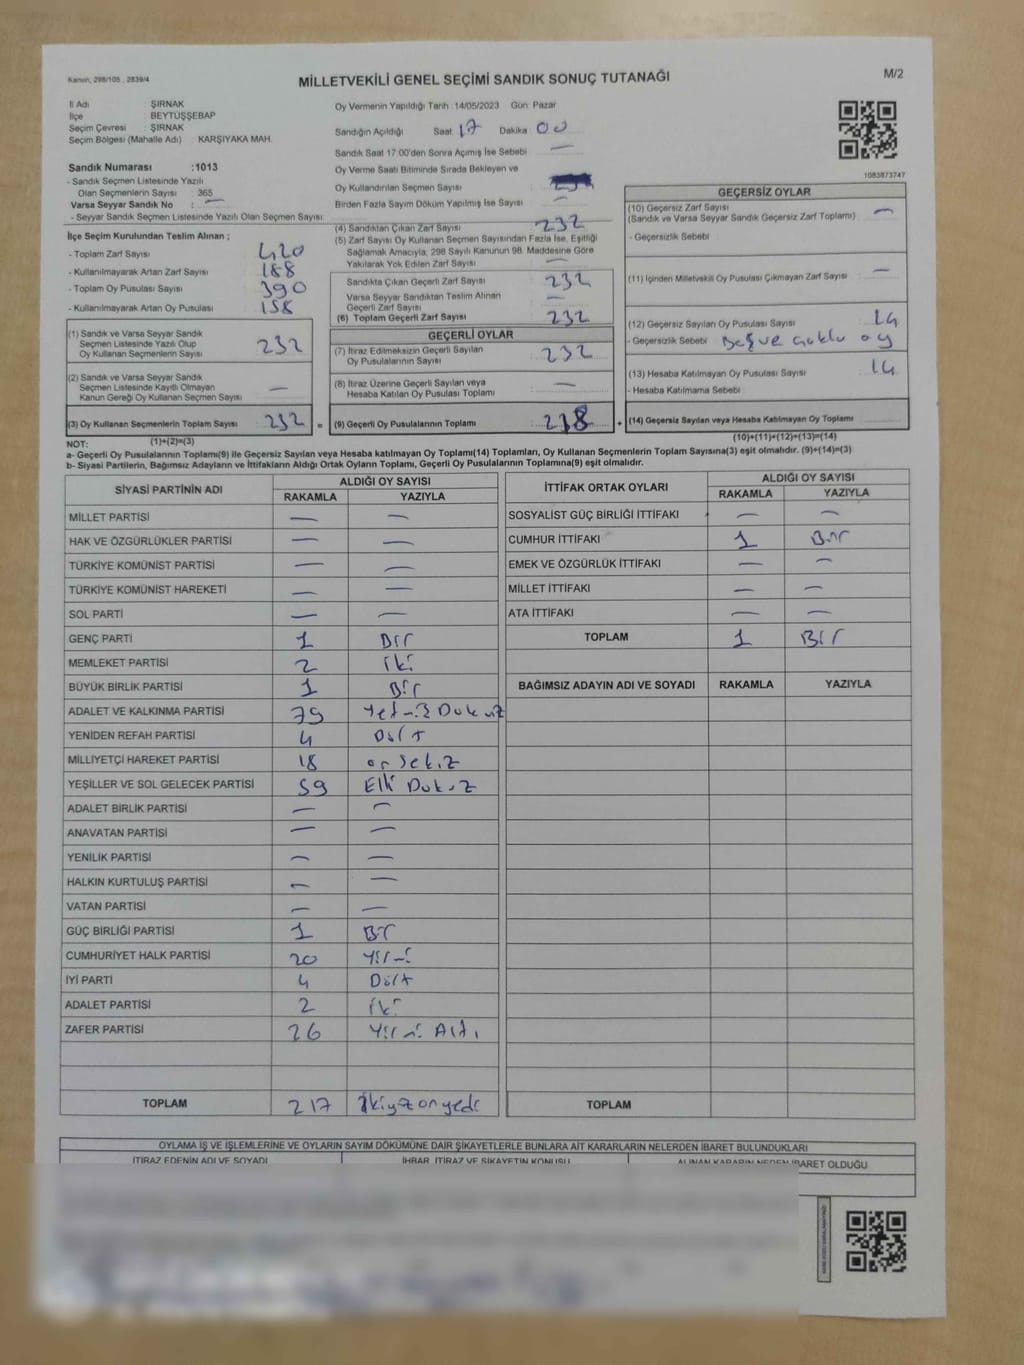 Kanun, 298/105 , 2839/4
MİLLETVEKİLİ GENEL SEÇİMİ SANDIK SONUÇ TUTANAĞI
M/2
İl Adı : ŞIRNAK
İlçe : BEYTÜŞŞEBAP
Seçim Çevresi : ŞIRNAK
Seçim Bölgesi (Mahalle Adı) : KARŞIYAKA MAH.
Sandık Numarası :1013
- Sandık Seçmen Listesinde Yazılı
Olan Seçmenlerin Sayısı : 365
Varsa Seyyar Sandık No : —
- Seyyar Sandık Seçmen Listesinde Yazılı Olan Seçmen Sayısı:
Oy Vermenin Yapıldığı Tarih :14/05/2023 Gün: Pazar
Sandığın Açıldığı Saat 17 Dakika 00
Sandık Saat 17:00'den Sonra Açılmış İse Sebebi —
Oy Verme Saati Bitiminde Sırada Bekleyen ve
Oy Kullandırılan Seçmen Sayısı
Birden Fazla Sayım Döküm Yapılmış İse Sayısı —
1083873747
İlçe Seçim Kurulundan Teslim Alınan ;
- Toplam Zarf Sayısı : 420
- Kullanılmayarak Artan Zarf Sayısı : 188
- Toplam Oy Pusulası Sayısı : 390
- Kullanılmayarak Artan Oy Pusulası : 158
(1) Sandık ve Varsa Seyyar Sandık
Seçmen Listesinde Yazılı Olup
Oy Kullanan Seçmenlerin Sayısı 232
(2) Sandık ve Varsa Seyyar Sandık
Seçmen Listesinde Kayıtlı Olmayan
Kanun Gereği Oy Kullanan Seçmen Sayısı —
(3) Oy Kullanan Seçmenlerin Toplam Sayısı 232 =
(4) Sandıktan Çıkan Zarf Sayısı 232
(5) Zarf Sayısı Oy Kullanan Seçmen Sayısından Fazla İse, Eşitliği
Sağlamak Amacıyla, 298 Sayılı Kanunun 98. Maddesine Göre
Yakılarak Yok Edilen Zarf Sayısı —
Sandıkta Çıkan Geçerli Zarf Sayısı 232
Varsa Seyyar Sandıktan Teslim Alınan
Geçerli Zarf Sayısı —
(6) Toplam Geçerli Zarf Sayısı 232
GEÇERLİ OYLAR
(7) İtiraz Edilmeksizin Geçerli Sayılan
Oy Pusulalarının Sayısı 232
(8) İtiraz Üzerine Geçerli Sayılan veya
Hesaba Katılan Oy Pusulası Toplamı —
(9) Geçerli Oy Pusulalarının Toplamı 218 +
GEÇERSİZ OYLAR
(10) Geçersiz Zarf Sayısı
(Sandık ve Varsa Seyyar Sandık Geçersiz Zarf Toplamı) —
- Geçersizlik Sebebi
(11) İçinden Milletvekili Oy Pusulası Çıkmayan Zarf Sayısı —
(12) Geçersiz Sayılan Oy Pusulası Sayısı 14
- Geçersizlik Sebebi Boş ve çoklu oy
(13) Hesaba Katılmayan Oy Pusulası Sayısı 14
- Hesaba Katılmama Sebebi :
(14) Geçersiz Sayılan veya Hesaba Katılmayan Oy Toplamı
NOT: (1)+(2)=(3)
(10)+(11)+(12)+(13)=(14)
a- Geçerli Oy Pusulaları Toplamı(9) ile Geçersiz Sayılan veya Hesaba katılmayan Oy Toplamı(14) Toplamları, Oy Kullanan Seçmenlerin Toplam Sayısına(3) eşit olmalıdır. (9)+(14)=(3)
b- Siyasi Partilerin, Bağımsız Adayların ve İttifakların Aldığı Ortak Oyların Toplamı, Geçerli Oy Pusulalarının Toplamına(9) eşit olmalıdır.
SİYASİ PARTİNİN ADI ALDIĞI OY SAYISI
RAKAMLA YAZIYLA
MİLLET PARTİSİ — —
HAK VE ÖZGÜRLÜKLER PARTİSİ — —
TÜRKİYE KOMÜNİST PARTİSİ — —
TÜRKİYE KOMÜNİST HAREKETİ — —
SOL PARTİ — —
GENÇ PARTİ 1 Bir
MEMLEKET PARTİSİ 2 iki
BÜYÜK BİRLİK PARTİSİ 1 Bir
ADALET VE KALKINMA PARTİSİ 79 Yetmiş Dokuz
YENİDEN REFAH PARTİSİ 4 Dört
MİLLİYETÇİ HAREKET PARTİSİ 18 on Sekiz
YEŞİLLER VE SOL GELECEK PARTİSİ 59 Elli Dokuz
ADALET BİRLİK PARTİSİ — —
ANAVATAN PARTİSİ — —
YENİLİK PARTİSİ — —
HALKIN KURTULUŞ PARTİSİ — —
VATAN PARTİSİ — —
GÜÇ BİRLİĞİ PARTİSİ 1 Bir
CUMHURİYET HALK PARTİSİ 20 Yirmi
İYİ PARTİ 4 Dört
ADALET PARTİSİ 2 iki
ZAFER PARTİSİ 26 Yirmi Altı
TOPLAM 217 ikiyüzonyedi
İTTİFAK ORTAK OYLARI ALDIĞI OY SAYISI
RAKAMLA YAZIYLA
SOSYALİST GÜÇ BİRLİĞİ İTTİFAKI — —
CUMHUR İTTİFAKI 1 Bir
EMEK VE ÖZGÜRLÜK İTTİFAKI — —
MİLLET İTTİFAKI — —
ATA İTTİFAKI — —
TOPLAM 1 Bir
BAĞIMSIZ ADAYIN ADI VE SOYADI RAKAMLA YAZIYLA
TOPLAM
OYLAMA İŞ VE İŞLEMLERİNE VE OYLARIN SAYIM DÖKÜMÜNE DAİR ŞİKAYETLERLE BUNLARA AİT KARARLARIN NELERDEN İBARET BULUNDUKLARI
İTİRAZ EDENİN ADI VE SOYADI İHBAR, İTİRAZ VE ŞİKAYETİN KONUSU ALINAN KARARIN NEDEN İBARET OLDUĞU